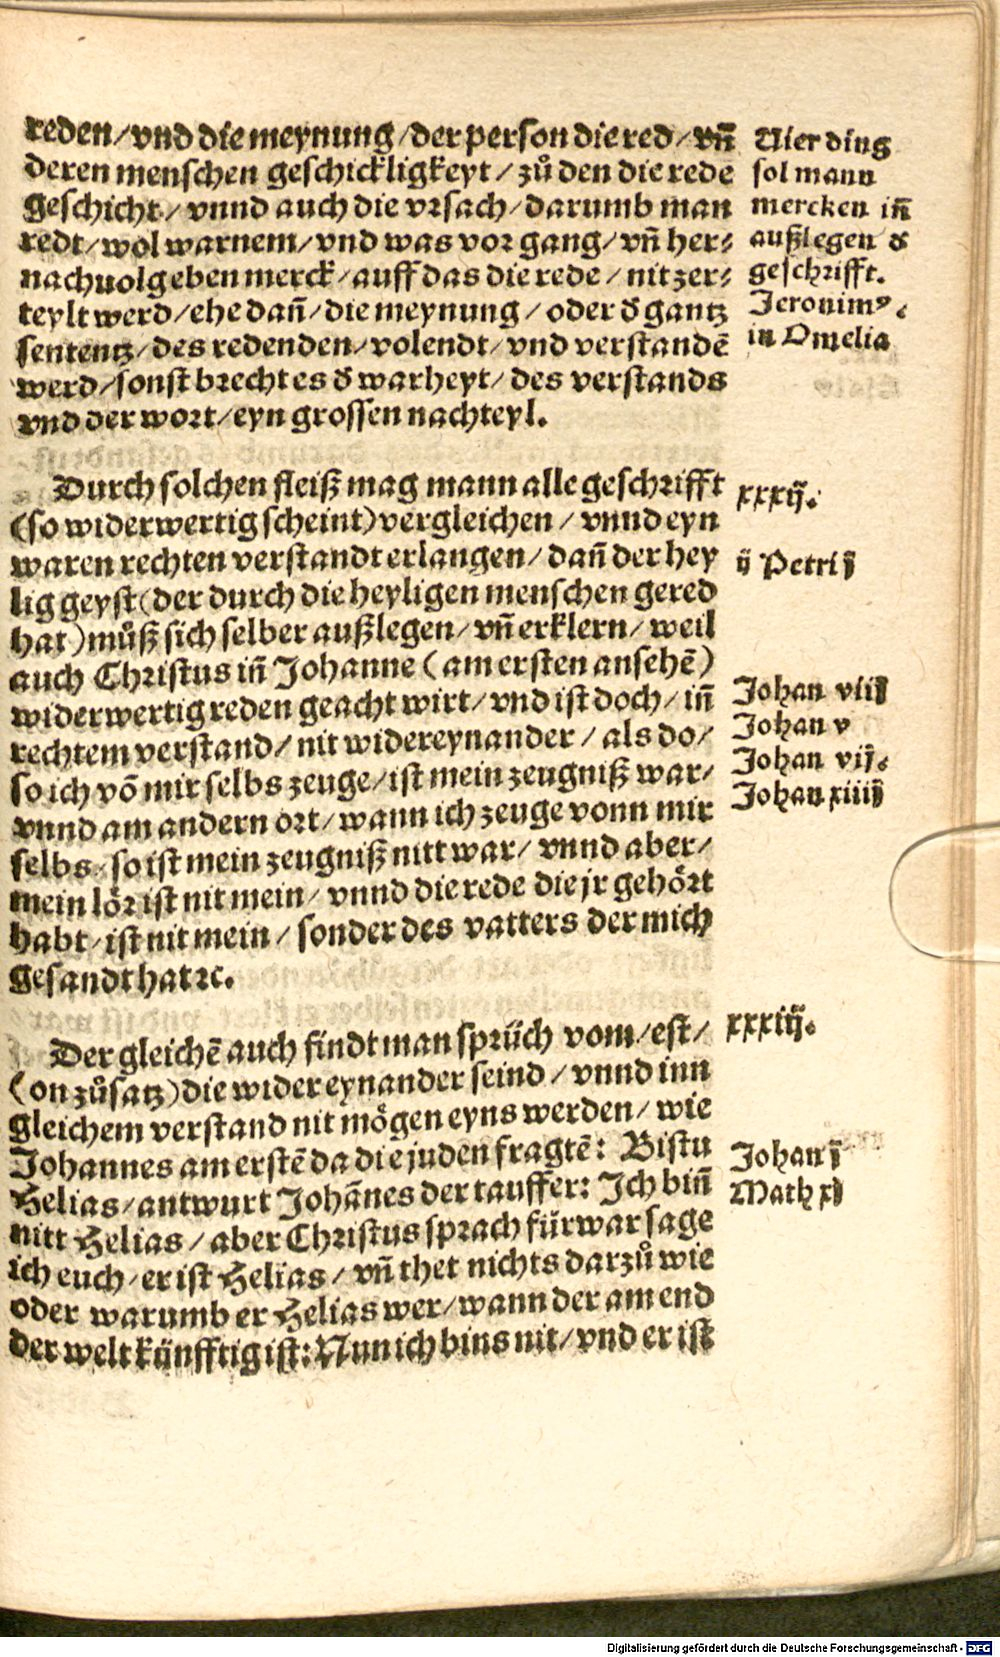 reden/vnd die meynung/der person die red/vn̄
deren menschen geschickligkeyt/zů den die rede
geschicht/vnnd auch die vrsach/darumb man
redt/wol warnem/vnd was vor gang/vn̄ her⸗
nachuolgeben merck/auff das die rede/nit zer⸗
teylt werd/ehe dan̄/die meynung/oder d̄ gantz
sententz/des redenden/volendt/vnd verstandē
werd/sonst brecht es d̄ warheyt/des verstands
vnd der wort/eyn grossen nachteyl.
Vier ding
sol mann
mercken in̄
außlegen d̄
geschrifft.
Jeronimꝰ.
in Omelia
Durch solchen fleiß mag mann alle geschrifft
(so widerwertig scheint)vergleichen/vnnd eyn
waren rechten verstandt erlangen/dan̄ der hey
lig geyst(der durch die heyligen menschen gered
hat)můß sich selber außlegen/vn̄ erklern/weil
auch Christus in̄ Johanne(am ersten ansehē)
widerwertig reden geacht wirt/vnd ist doch/in̄
rechtem verstand/nit widereynander/als do/
so ich vō mir selbs zeuge/ist mein zeugniß war/
vnnd am andern ort/wann ich zeuge vonn mir
selbs/so ist mein zeugniß nitt war/vnnd aber/
mein lör ist nit mein/vnnd die rede die jr gehört
habt/ist nit mein/sonder des vatters der mich
gesandt hat ꝛc.
xxxij.
ij Petri j
Johan viij
Johan v
Johan vij.
Johan xiiij
Der gleichē auch findt man sprüch vom/est/
(on zůsatz)die wider eynander seind/vnnd inn
gleichem verstand nit mögen eyns werden/wie
Johannes am erstē da die juden fragtē: Bistu
Helias/antwurt Johānes der tauffer: Ich bin̄
nitt Helias/aber Christus sprach fürwar sage
ich euch/er ist Helias/vn̄ thet nichts darzů wie
oder warumb er Helias wer/wann der am end
der welt künfftig ist: Nun ich bins nit/vnd er ist
xxxiij.
Johan j
Math xj
Digitalisierung gefördert durch die Deutsche Forschungsgemeinschaft - DFG